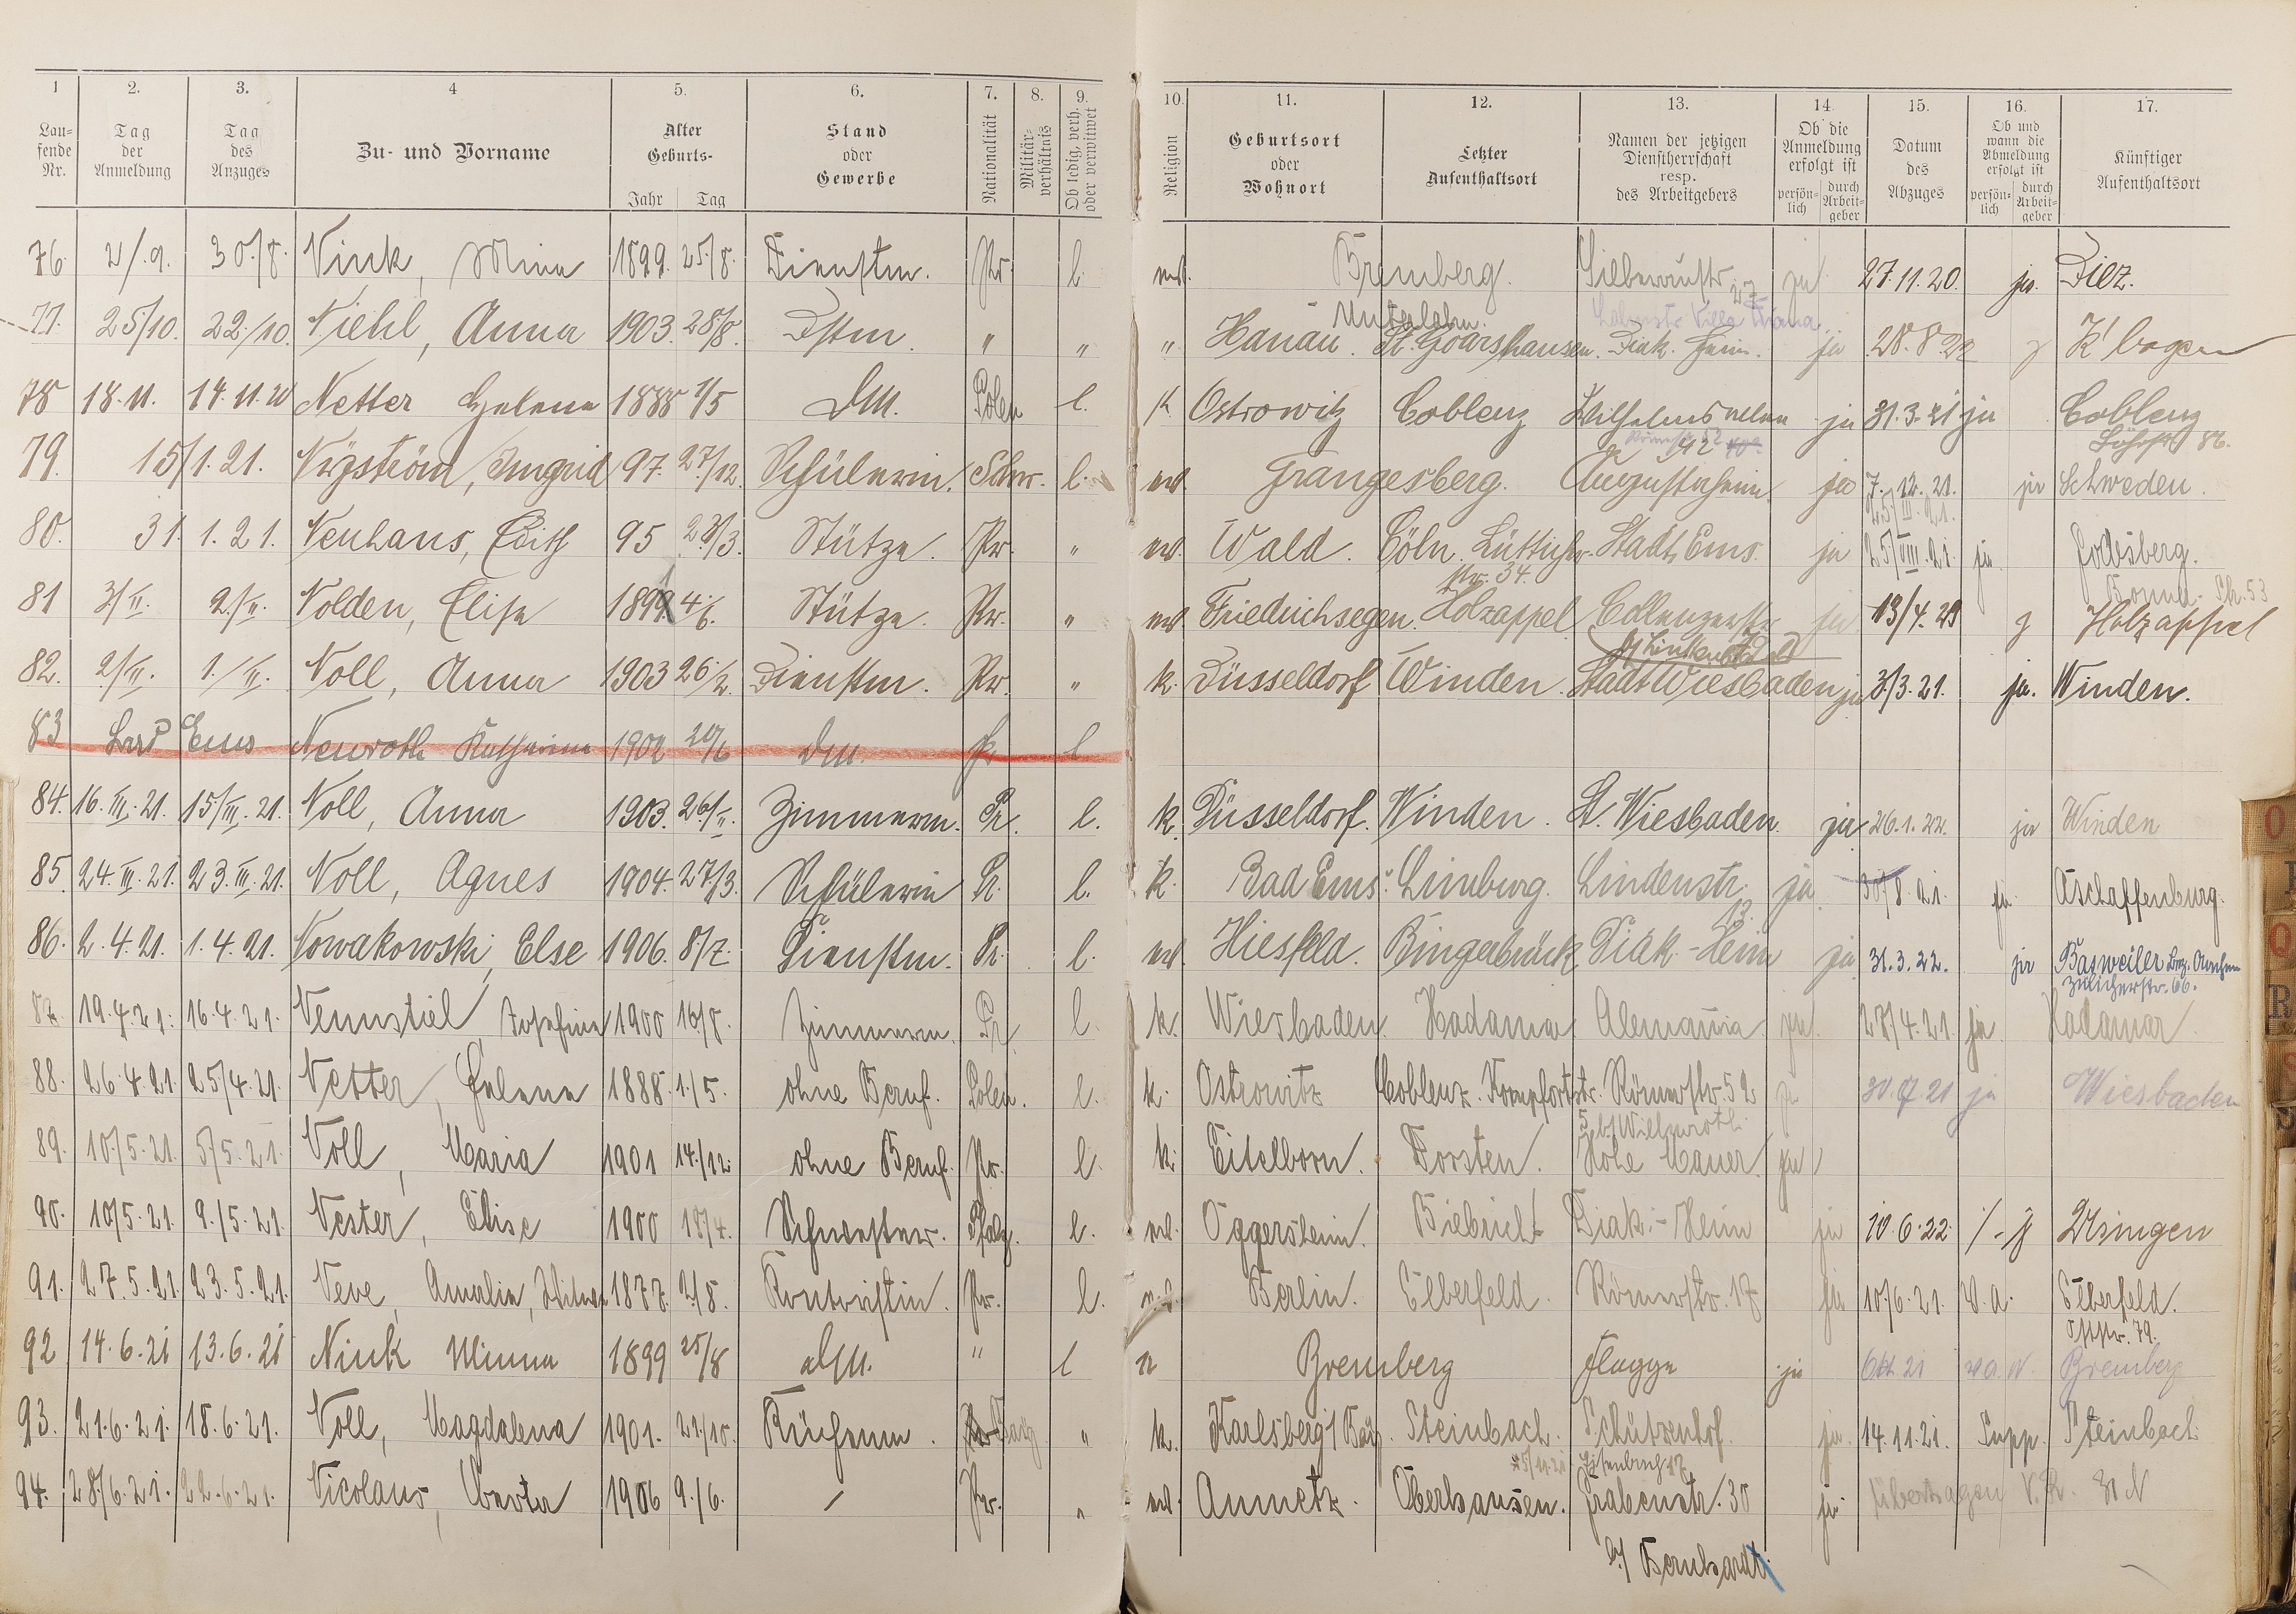 1 2. 3. 4 5. 6. 7. 8. 9. 10. 11. 12. 13. 14 15. 16. 17.
Laufende Nr. Tag der Anmeldung Tag des Anzuges Zu- und Vorname Alter Geburts- Jahr Tag Stand oder Gewerbe Nationalität Militärverhältnis Ob ledig, verh. oder verwitwet Religion Geburtsort oder Wohnort Letzter Aufenthaltsort Namen der jetzigen Dienstherrschaft resp. des Arbeitgebers Ob die Anmeldung erfolgt ist persönlich durch Arbeitgeber Datum des Abzuges Ob und wann die Abmeldung erfolgt ist persönlich durch Arbeitgeber Künftiger Aufenthaltsort
76. 2/.9. 30./8. Nink, Minna 1899. 25./8. Dienstm. Pr. l. ev. Bremberg. Silberaustr. 27 ja 27.11.20. ja. Diez.
Unterlahn.
77. 25/10. 22./10. Niehl, Anna 1903. 28./8. Dstm. " " " Hanau. St. Goarshausen. Diak. Heim. ja 28.8 22
78 18.11. 14.11.20 Netter Helene 1888 1/5 Dm. Polen l. k. Ostrowitz Coblenz Wilhelmsallee ja 31.3.21 ja Coblenz
Löhrstr. 86.
79. 15/1.21. Nygström, Ingrid 97. 27./12. Schülerin. Schw. l. ev. Grangesberg. Augustaheim ja 7.12.21. ja Schweden.
25/III.21.
80. 31. 1.21. Neuhaus, Edith 95 28/3. Stütze. Pr. " ev. Wald. Cöln. Lüttichstr. Stadt Ems. ja 25/VIII.21. ja. Godesberg.
Nr. 34.
81 3/II. 2./II. Nolden, Elise 1899. 4./6. Stütze. Pr. " ev. Friedrichsegen. Holzappel ja 13/4. g Holzappel
82. 2/III. 1./III. Noll, Anna 1903 26./2. Dienstm. Pr. " k. Düsseldorf Winden. Stadt Wiesbaden ja 3/3.21. ja. Winden.
83 Bad Ems Neuroth Katharina 1902 20/6 Dm. Pr l
84. 16.III.21. 15/III.21. Noll, Anna 1903. 26/II. Zimmerm. Pr. l. k. Düsseldorf. Winden. St. Wiesbaden. ja 26.1.22. ja Winden
85. 24.III.21. 23.III.21. Noll, Agnes 1904. 27./3. Schülerin Pr. l. k. Bad Ems. Limburg. Lindenstr. ja 30/8.21. ja. Aschaffenburg.
13.
86. 2.4.21. 1.4.21. Nowakowski, Else 1906. 8./7. Dienstm. Pr. l. ev. Hiesfeld. Bingerbrück Diak.-Heim ja 31.3.22. ja Basweiler Bez. Aachen
Zülicherstr. 66.
87. 19.4.21. 16.4.21. Nennstiel, Josefine 1900 16/8. Zimmerm. Pr. l. k. Wiesbaden. Hadamar Alemannia ja. 28/4.21. ja. Hadamar
88. 26.4.21 25/4.21. Netter, Helene 1888. 1./5. ohne Beruf. Polen. l. k. Ostrowitz Coblenz. Römerstr. 52 ja 30. 21 ja Wiesbaden
89. 10/5.21. 5/5.21. Noll, Maria 1901 14./12. ohne Beruf. Pr. l. k. Eitelborn. Dorsten. Hohe Mauer ja
90. 10/5.21. 9./5.21. Nester, Elise 1900 18/4. Schwester. Pfalz. l. ev. Oggersheim. Biebrich Diak.-Heim ja 10.6.22. Usingen
91. 27.5.21. 23.5.21. Neve, Amalie, 1877. 2/8. Kontoristin. Pr. l. ev. Berlin. Elberfeld. Römerstr. 17 ja 10/6.21. v.a. Elberfeld.
Oststr. 79.
92 14.6.21 13.6.21 Nink Minna 1899 25/8 Dm. " l Bremberg Flagge ja Okt. 21 Bremberg
93. 21.6.21. 18.6.21. Noll, Magdalena 1901. 21/10. Küchenm. " k. Karlsberg/Bay. Steinbach. Schützenhof ja. 14.11.21. Steinbach.
94. 28/6.21. 22.6.21. Nicolaus, Berta 1906 9./6. / Pr. " ev. Aumetz. Oberhausen. Grabenstr. 30 ja übertragen
b/ Bernhardt.